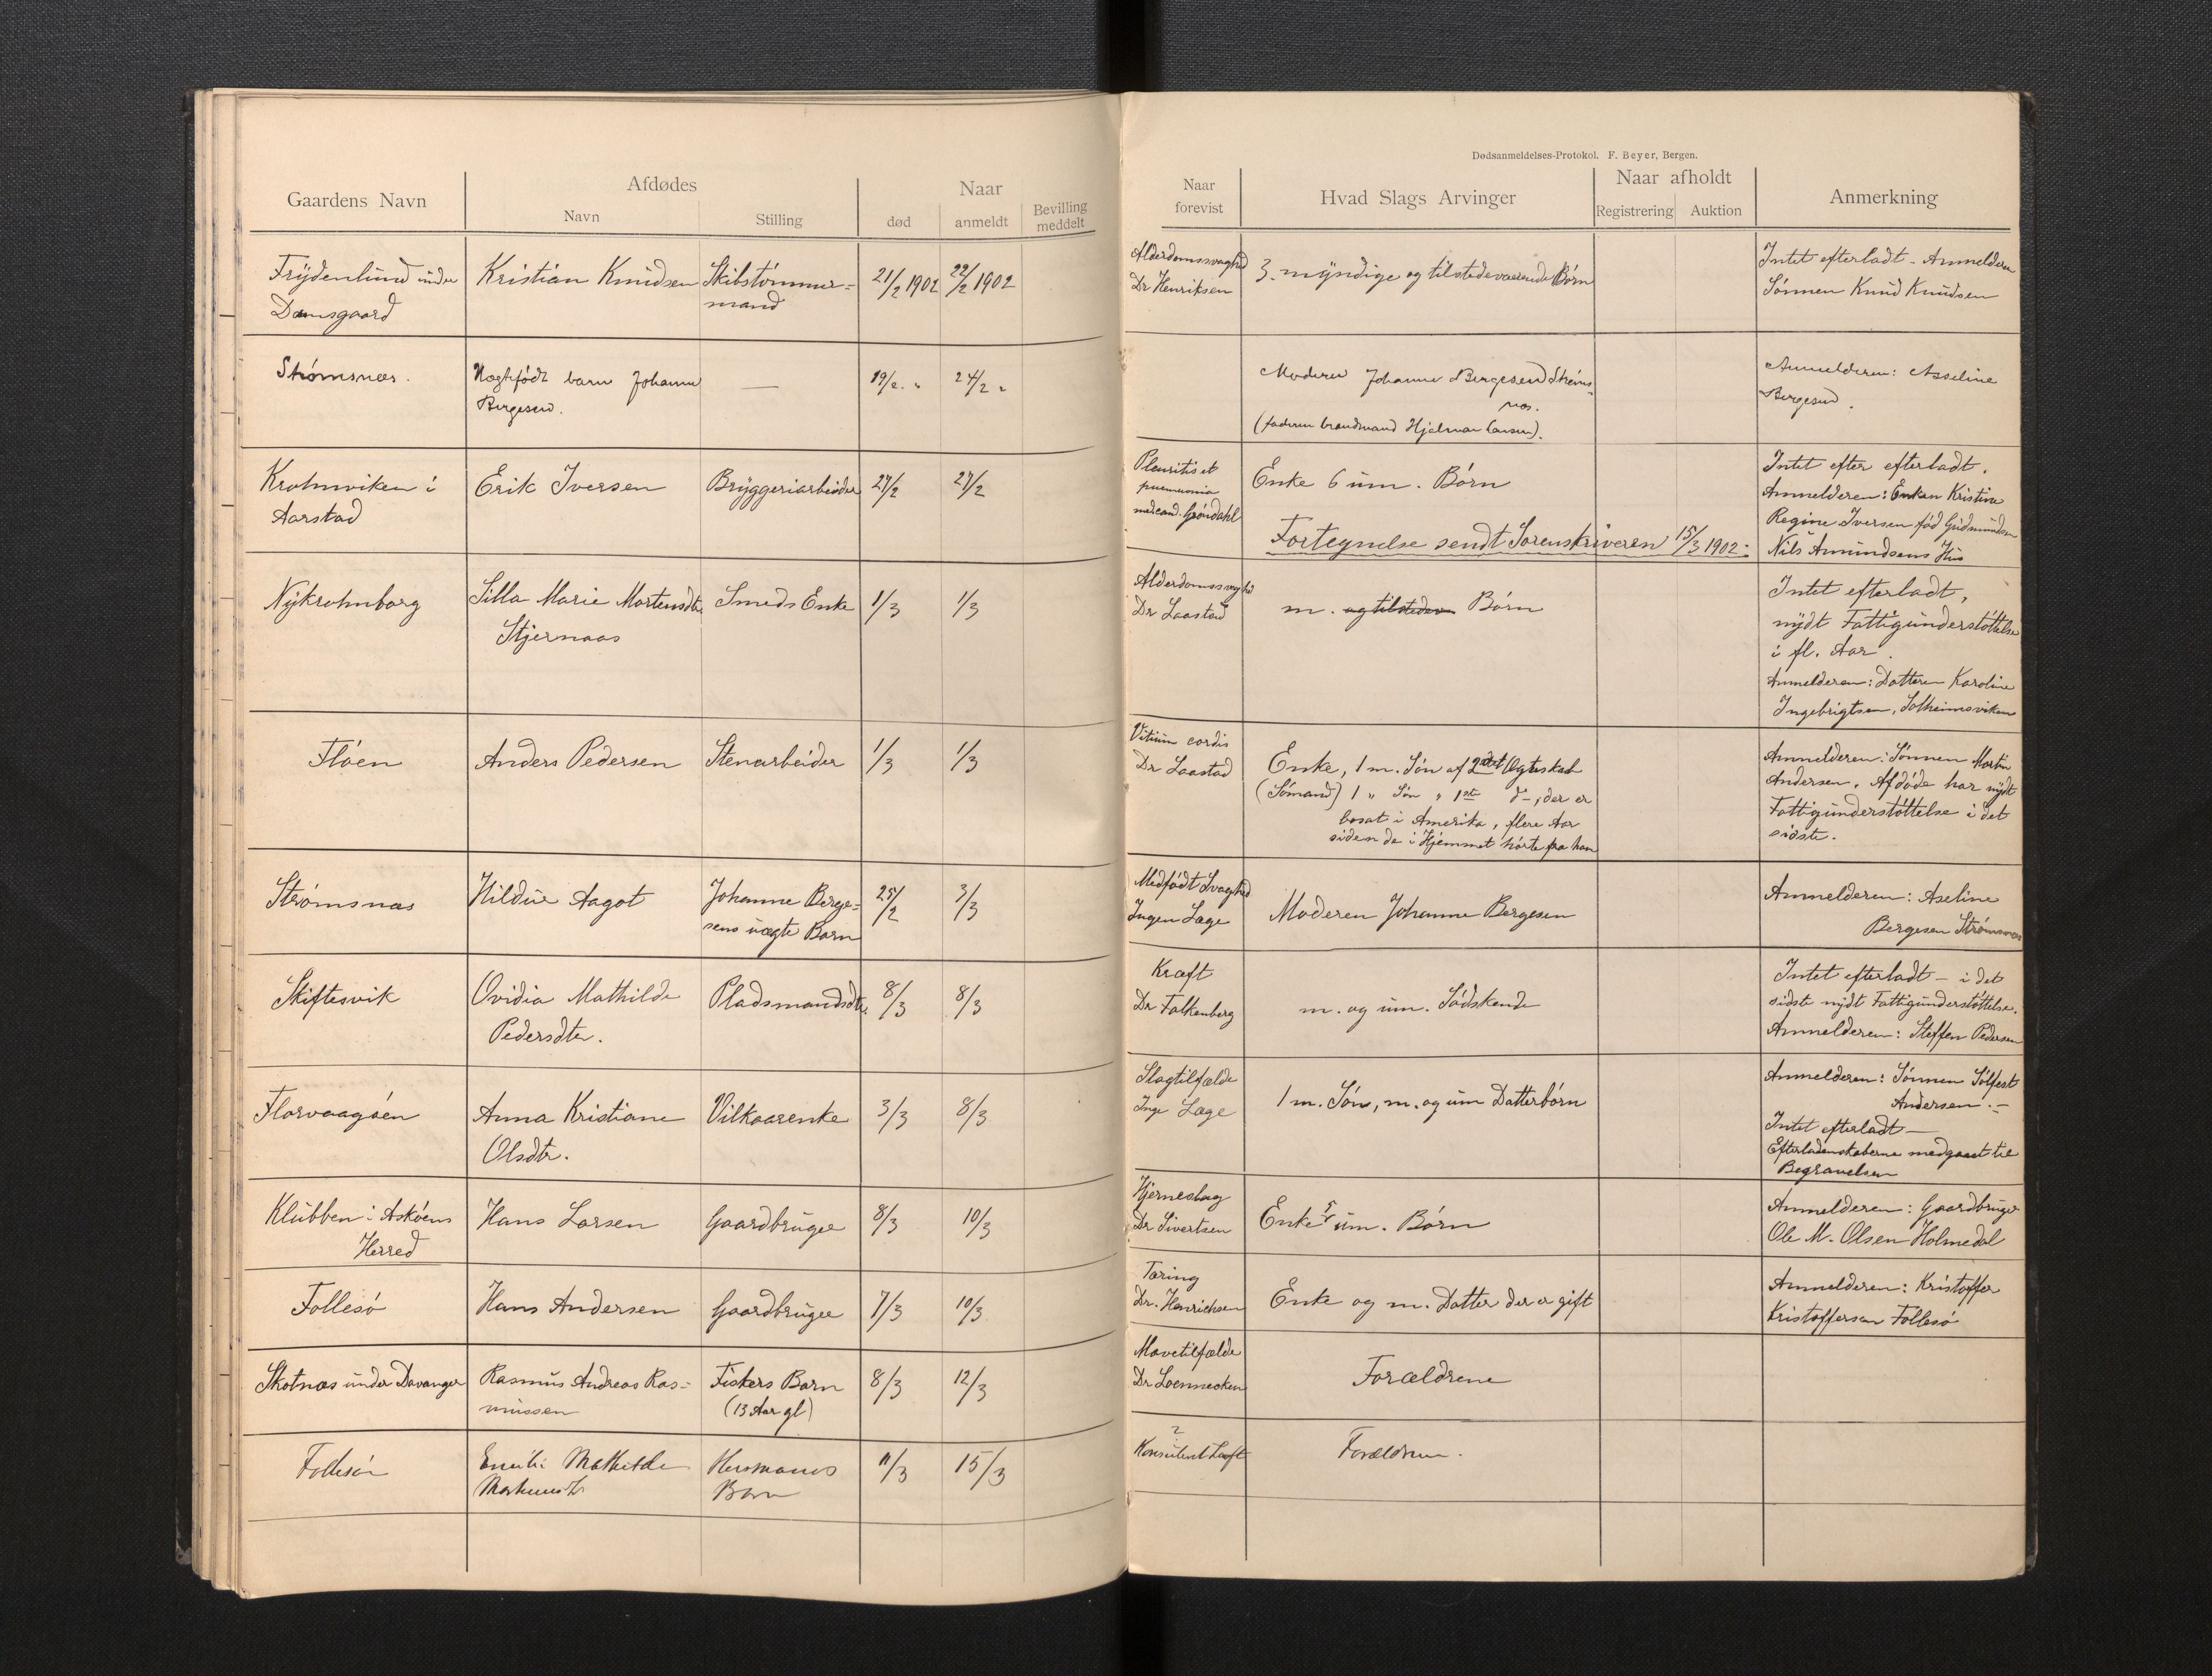 Dødsanmeldelses-Protokol. F. Beyer, Bergen.
Gaardens Navn
Afdødes
Navn
Stilling
Naar
død
anmeldt
Bevilling
meddelt
Naar
forevist
Hvad Slags Arvinger
Naar afholdt
Registrering
Auktion
Anmerkning
Frydenlund under
Damsgaard
Kristian Knudsen
Skibstømmer=
mand
21/2 1902
22/2 1902
Alderdomssvaghed
Dr Henriksen
3. myndige og tilstedeværende Børn
Intet efterladt - Anmelderen
Sønnen Knud Knudsen
Strømsnæs.
barn Johanne
Bergesen.
—
19/2. "
24/2 "
Moderen Johanne Bergesen Strøms-
næs.
(faderen brandmand Hjalmar Larsen).
Anmelderen: Asseline
Bergesen.
Krohnviken i
Aarstad
Erik Iversen
Bryggeriarbeider
27/2
27/2
Pleuritis et
pneumonia
med cand. Grøndahl
Enke 6 um. Børn
Fortegnelse sendt Sorenskriveren 15/3 1902.
Intet efter efterladt.
Anmelderen: Enken Kristine
Regine Iversen fød Gudmundsen
Nils Amundsens Hus
Nykrohnborg
Silla Marie Mortensdtr
Stjernaas
Smeds Enke
1/3
1/3
Alderdomssvaghed
Dr Laastad
m. og tilstedev Børn
Intet efterladt,
nydt Fattigunderstøttelse
i fl. Aar.
Anmelderen: Datteren Karoline
Ingebrigtsen, Solheimsviken
Fløen
Anders Pedersen
Stenarbeider
1/3
1/3
Vitium cordis
Dr Laastad
Enke, 1 m. Søn af 2det Ægteskab
(Sømand) 1 " Søn " 1ste d-, der er
bosat i Amerika, flere Aar
siden de i Hjemmet hørte fra ham
Anmelderen: Sønnen Martin
Andersen. Afdøde har nydt
Fattigunderstøttelse i det
sidste.
Strømsnæs
Hildur Aagot
Johanne Berge=
sens uægte Barn
25/2
3/3
Medfødt Svaghed
Ingen Læge
Moderen Johanne Bergesen
Anmelderen: Aseline
Bergesen Strømsnæs
Skiftesvik
Ovidia Mathilde
Pedersdtr.
Pladsmandsdtr.
8/3
8/3
Kræft
Dr Falkenberg
m. og um. Sødskende
Intet efterladt - i det
sidste nydt Fattigunderstøttelse.
Anmelderen: Steffen Pedersen
Florvaagøen
Anna Kristiane
Olsdtr.
Vilkaarenke
3/3
8/3
Slagtilfælde
Inge Læge
1 m. Søn, m. og um Datterbørn
Anmelderen: Sønnen Sølfest
Andersen.-
Intet efterladt -
Efterladenskaberne medgaaet til
Begravelsen
Klubben i Askøens
Herred
Hans Larsen
Gaardbruger
8/3
10/3
Hjerneslag
Dr Sivertsen
Enke 5 um. Børn
Anmelderen: Gaardbruger
Ole M. Olsen Holmedal
Follesø
Hans Andersen
Gaardbruger
7/3
10/3
Tæring
Dr. Henrichsen
Enke og m. Datter der er gift
Anmelderen: Kristoffer
Kristoffersen Follesø
Skotnæs under Davanger
Rasmus Andreas Ras=
mussen
Fiskers Barn
(13 Aar gl)
8/3
12/3
Mavetilfælde
Dr Loennecken
Forældrene
Follesøe
Emilie Mathilde
Husmands
Barn
11/3
15/3
?
Forældrene.